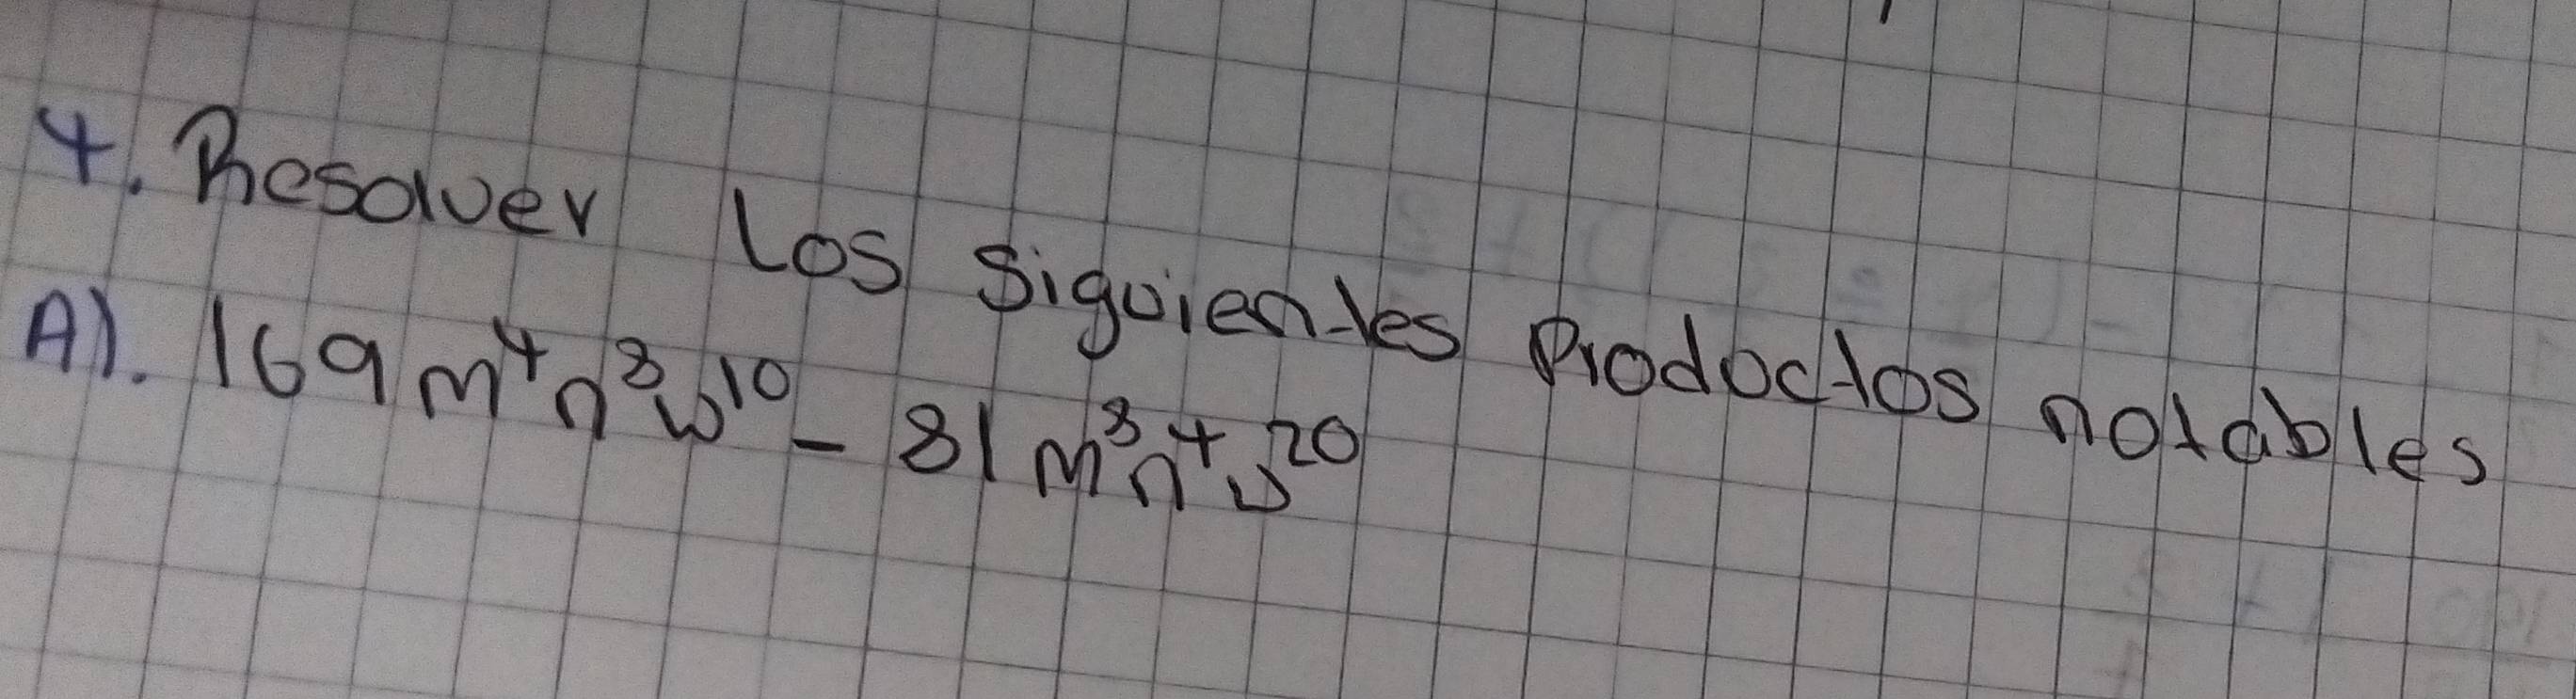 4. Resolver los siguientes Productos notables
A). 169 m⁴n⁸w¹⁰ - 81 m⁸n⁴w²⁰